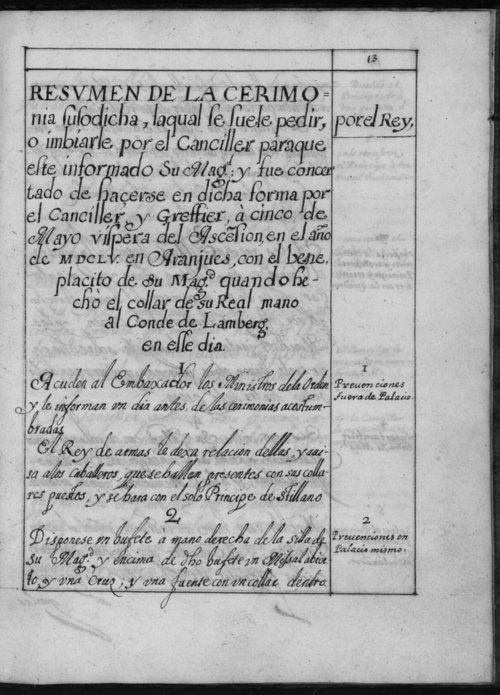 13
RESVMEN DE LA CERIMO=
nia susodicha, laqual se suele pedir, por el Rey,
o imbiarle por el Canciller paraque
este informado Su Magᵈ; y fue concer
tado de haçerse en dicha forma por
el Canciller, y Greffier, à cinco de
Mayo vispera del Ascẽsion, en el año
de MDCLV. en Aranjues, con el bene
placito de Su Magᵈ quando he-
chò el collar de su Real mano
al Conde de Lamberg,
en esse dia.
1
Acuden al Embaxador los Ministros de la Orden
y le informan vn dia antes, de las cerimonias acostum-
bradas
1
Prevenciones
fuera de Palacio.
El Rey de armas le dexa relacion dellas, y aui
sa a los caballeros, que se hallen presentes con sus colla
res puestos, y se hara con el solo Principe de Stillano
2
Disponese vn bufete à mano derecha de la silla de
Su Magᵈ y encima de dho bufete vn Missal abier
to, y vna Cruz; y vna fuente con vn collar dentro.
2
Prevenciones en
Palacio mismo.